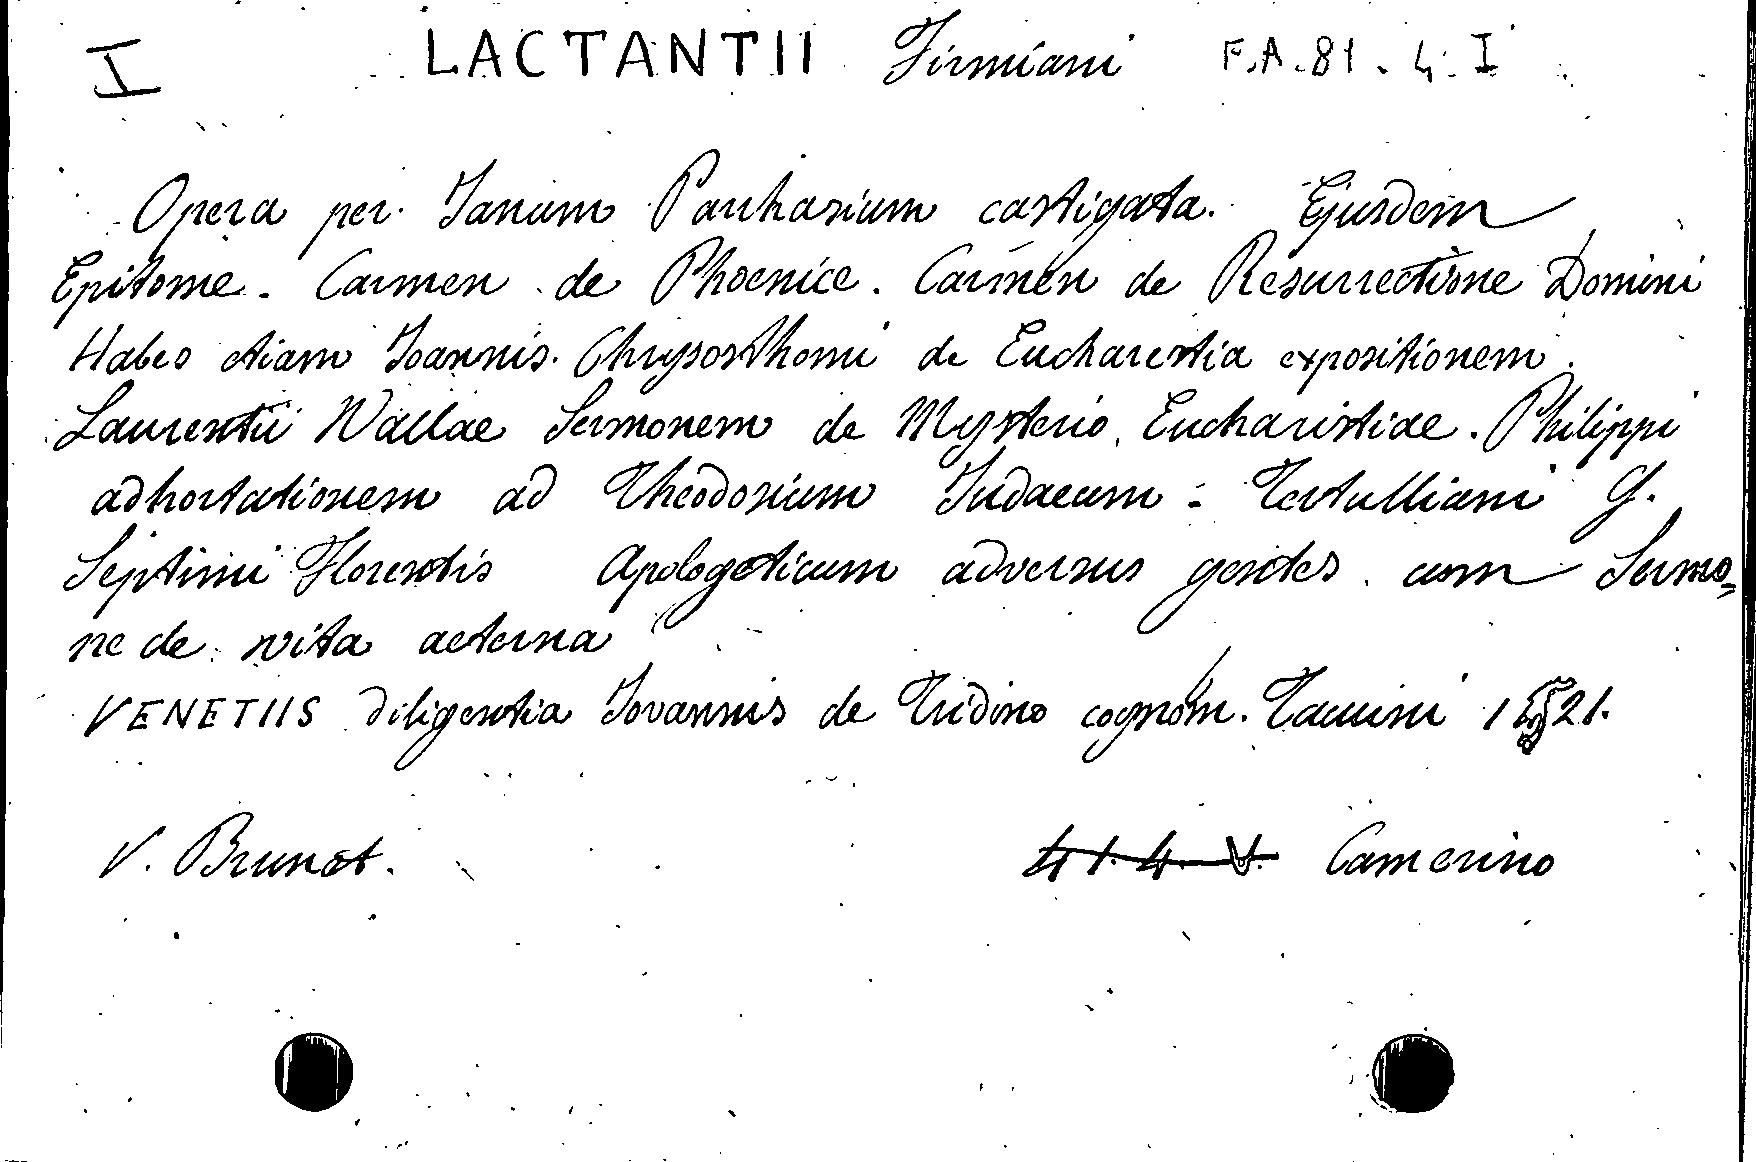 I LACTANTII Firmiani F.A.81.4.I
Opera per Janum Parrhasium castigata. Ejusdem
Epitome. Carmen de Phoenice. Carmen de Resurrectione Domini
Habes etiam Joannis. Chrysosthomi de Eucharestia expositionem.
Laurentii Wallae Sermonem de Mysterio Eucharistiae. Philippi
adhortationem ad Theodosium Judaeum - Tertulliani G.
Septimi Florentis Apologeticum adversus gentes cum Sermo=
ne de vita aeterna
VENETIIS diligentia Jovannis de Tridino cognom. Tacuini 1521.
V. Brunet. 41.4.V. Camerino